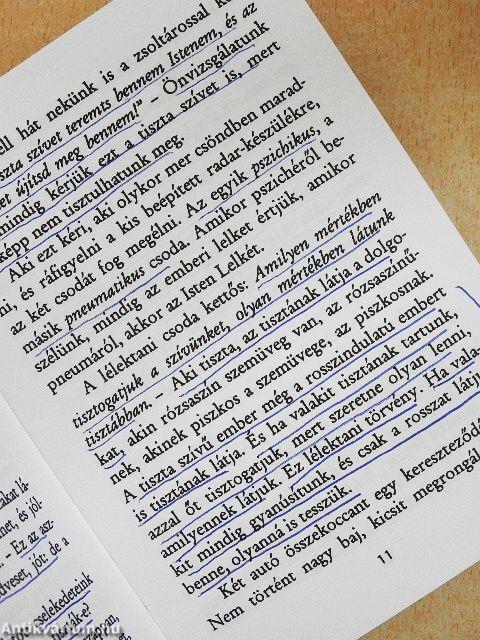 ell hát nekünk is a zsoltárossal
szta szívet teremts bennem Istenem, és az
et újítsd meg bennem!" – Önvizsgálatunk
mindig kérjük ezt a tiszta szívet is, mert
képp nem tisztulhatunk meg.
Aki ezt kéri, aki olykor mer csöndben marad-
ni, és ráfigyelni a kis beépített radar-készülékre,
az két csodát fog megélni. Az egyik pszichikus, a
másik pneumatikus csoda. Amikor pszichéről be-
szélünk, mindig az emberi lelket értjük, amikor
pneumáról, akkor az Isten Lelkét.
A lélektani csoda kettős: Amilyen mértékben
tisztogatjuk a szívünket, olyan mértékben látunk
tisztábban. – Aki tiszta, az tisztának látja a dolgo-
kat, akin rózsaszín szemüveg van, az rózsaszínű-
nek, akinek piszkos a szemüvege, az piszkosnak.
A tiszta szívű ember még a rosszindulatú embert
is tisztának látja. És ha valakit tisztának tartunk,
azzal őt tisztogatjuk, mert szeretne olyan lenni,
amilyennek látjuk. Ez lélektani törvény. Ha vala-
kit mindig gyanúsítunk, és csak a rosszat látj
benne, olyanná is tesszük.
Két autó összekoccant egy kereszteződé
Nem történt nagy baj, kicsit megrongál
11
akat lá-
net, és jól-
– Ez az asz-
dveset, jót: de a
selekedeteink
Antikvarium.hu